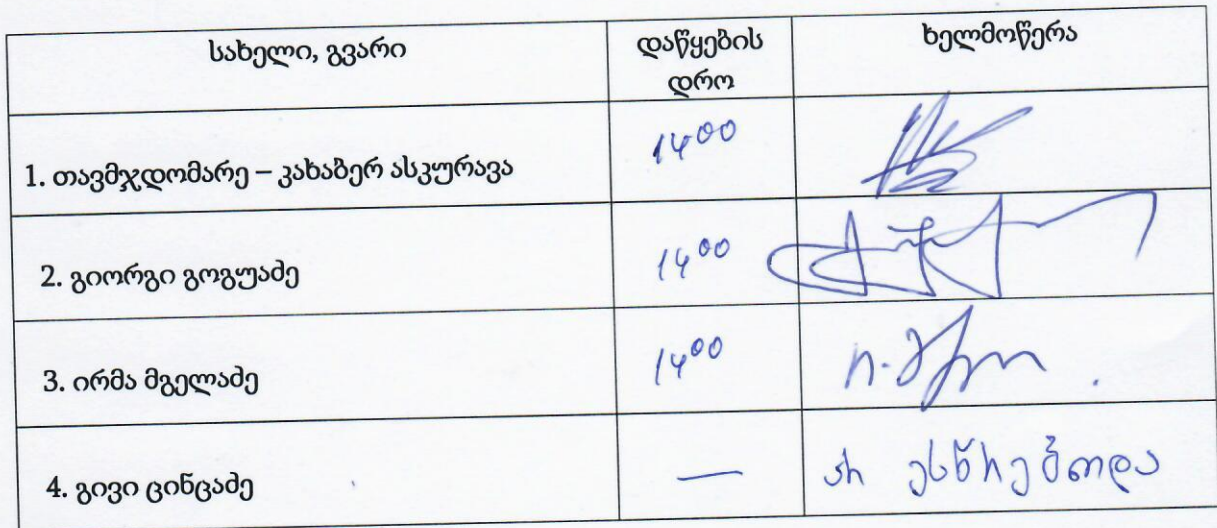 სახელი, გვარი
დაწყების
დრო
ხელმოწერა
1. თავმჯდომარე – კახაბერ ასკურავა
14⁰⁰
2. გიორგი გოგუაძე
14⁰⁰
3. ირმა მგელაძე
14⁰⁰
4. გივი ცინცაძე
—
არ ესწრებოდა